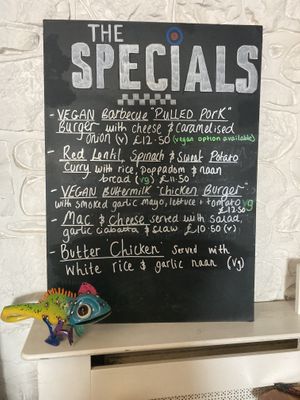 THE
SPECIALS
- VEGAN Barbecue "PULLED PORK"
Burger with cheese & caramelised
onion (v) £12.50 (vegan option available)
- Red Lentil, Spinach & Sweet Potato
Curry with rice, poppadom & naan
bread (vg) £11.50
- VEGAN BUTTERMILK "Chicken Burger"
with smoked garlic mayo, lettuce + tomato vg
£12.50
- Mac & Cheese served with salad,
garlic ciabatta & slaw £10.50 (v)
- Butter "Chicken" served with
white rice & garlic naan (vg)